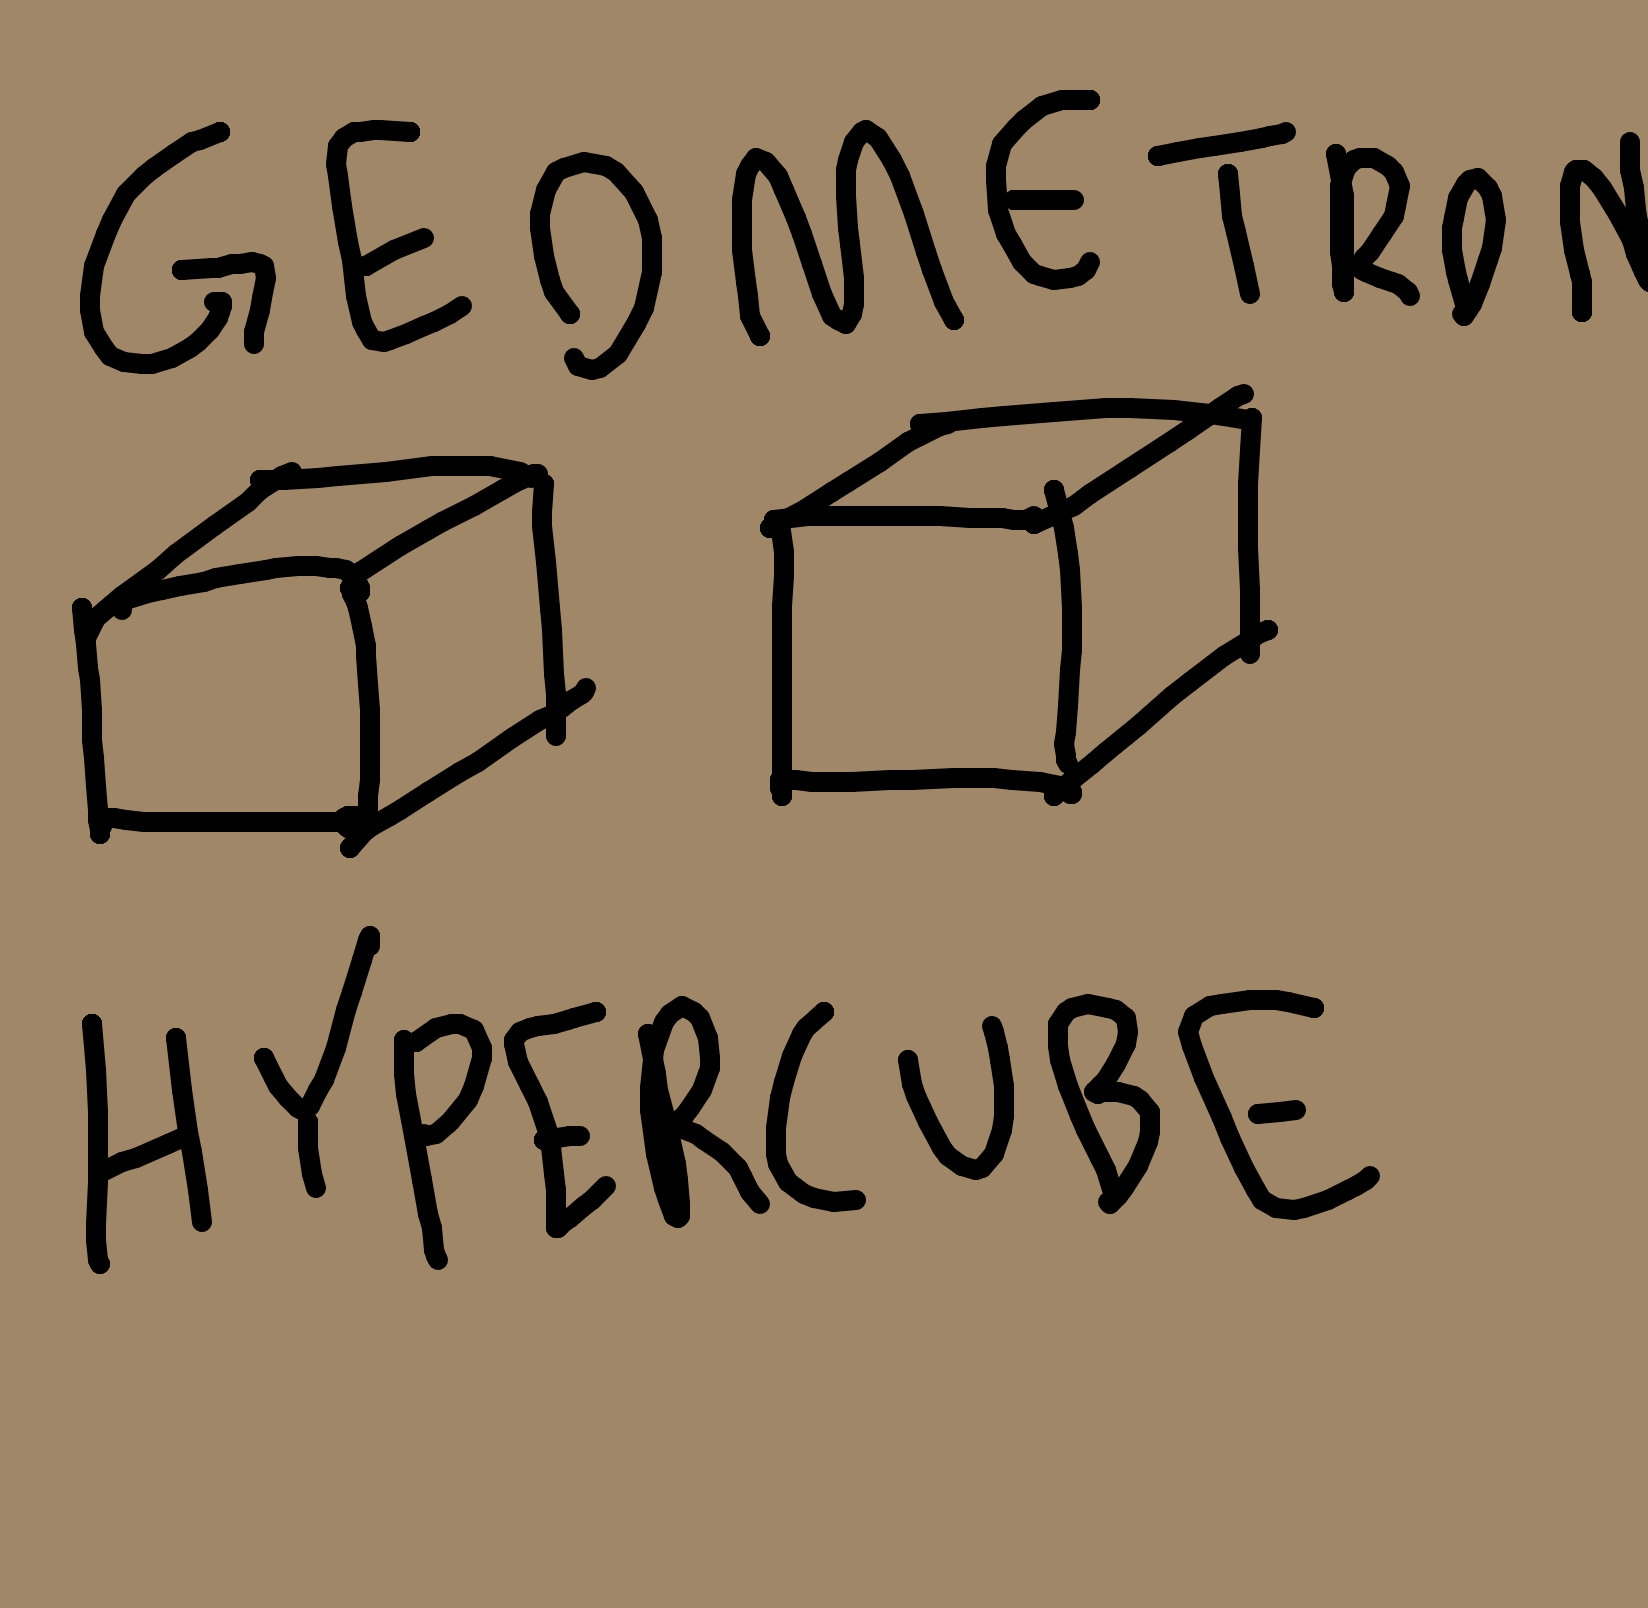 GEOMETRON
HYPERCUBE